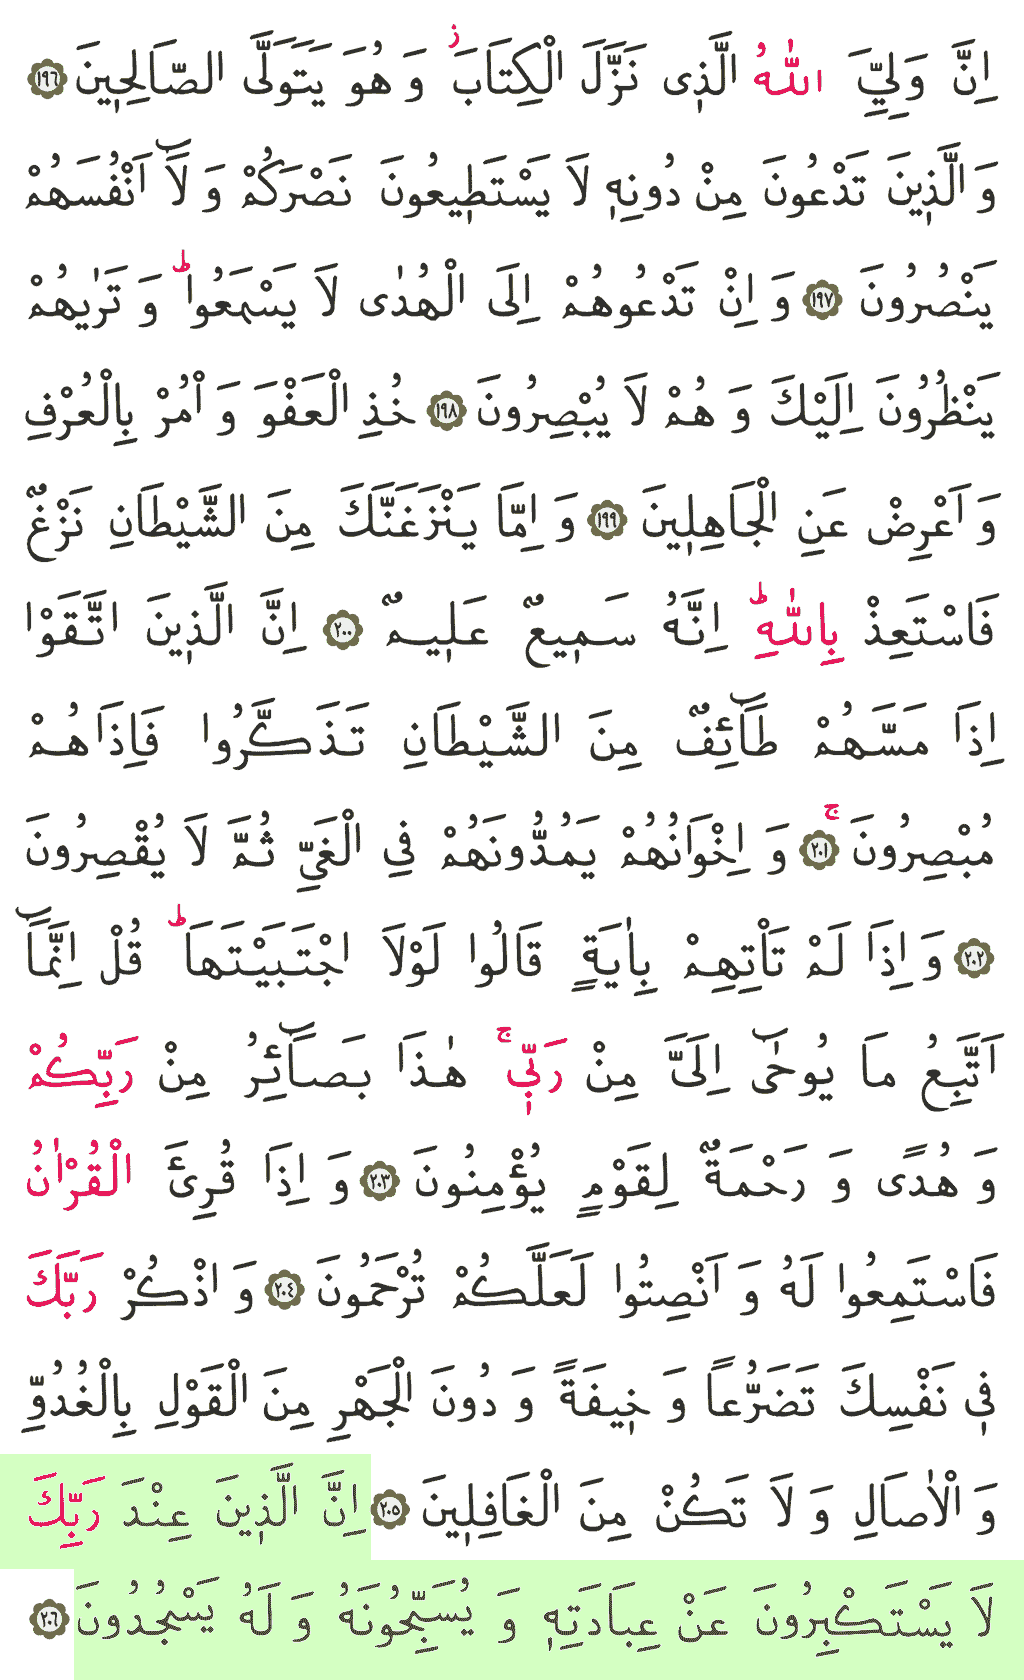 اِنَّ وَلِيِّ َ اللّٰهُ الَّذ۪ى نَزَّلَ الْكِتَابَ ۘ وَ هُوَ يَتَوَلَّى الصَّالِح۪ينَ ﴿١٩٦﴾
وَ الَّذ۪ينَ تَدْعُونَ مِنْ دُونِه۪ لَا يَسْتَط۪يعُونَ نَصْرَكُمْ وَ لَٓا اَنْفُسَهُمْ
يَنْصُرُونَ ﴿١٩٧﴾ وَ اِنْ تَدْعُوهُمْ اِلَى الْهُدٰى لَا يَسْمَعُوا ۜ وَ تَرٰيهُمْ
يَنْظُرُونَ اِلَيْكَ وَ هُمْ لَا يُبْصِرُونَ ﴿١٩٨﴾ خُذِ الْعَفْوَ وَ اْمُرْ بِالْعُرْفِ
وَ اَعْرِضْ عَنِ الْجَاهِل۪ينَ ﴿١٩٩﴾ وَ اِمَّا يَنْزَغَنَّكَ مِنَ الشَّيْطَانِ نَزْغٌ
فَاسْتَعِذْ بِاللّٰهِ ۜ اِنَّهُ سَم۪يعٌ عَل۪يمٌ ﴿٢٠٠﴾ اِنَّ الَّذ۪ينَ اتَّقَوْا
اِذَا مَسَّهُمْ طَٓائِفٌ مِنَ الشَّيْطَانِ تَذَكَّرُوا فَاِذَا هُمْ
مُبْصِرُونَ ۚ ﴿٢٠١﴾ وَ اِخْوَانُهُمْ يَمُدُّونَهُمْ فِي الْغَيِّ ثُمَّ لَا يُقْصِرُونَ
﴿٢٠٢﴾ وَ اِذَا لَمْ تَاْتِهِمْ بِاٰيَةٍ قَالُوا لَوْلَا اجْتَبَيْتَهَا ۜ قُلْ اِنَّمَٓا
اَتَّبِعُ مَا يُوحٰٓى اِلَىَّ مِنْ رَبّ۪ي ۚ هٰذَا بَصَٓائِرُ مِنْ رَبِّكُمْ
وَ هُدًى وَ رَحْمَةٌ لِقَوْمٍ يُؤْمِنُونَ ﴿٢٠٣﴾ وَ اِذَا قُرِئَ الْقُرْاٰنُ
فَاسْتَمِعُوا لَهُ وَ اَنْصِتُوا لَعَلَّكُمْ تُرْحَمُونَ ﴿٢٠٤﴾ وَ اذْكُرْ رَبَّكَ
ف۪ي نَفْسِكَ تَضَرُّعاً وَ خ۪يفَةً وَ دُونَ الْجَهْرِ مِنَ الْقَوْلِ بِالْغُدُوِّ
وَ الْاٰصَالِ وَ لَا تَكُنْ مِنَ الْغَافِل۪ينَ ﴿٢٠٥﴾ اِنَّ الَّذ۪ينَ عِنْدَ رَبِّكَ
لَا يَسْتَكْبِرُونَ عَنْ عِبَادَتِه۪ وَ يُسَبِّحُونَهُ وَ لَهُ يَسْجُدُونَ ﴿٢٠٦﴾